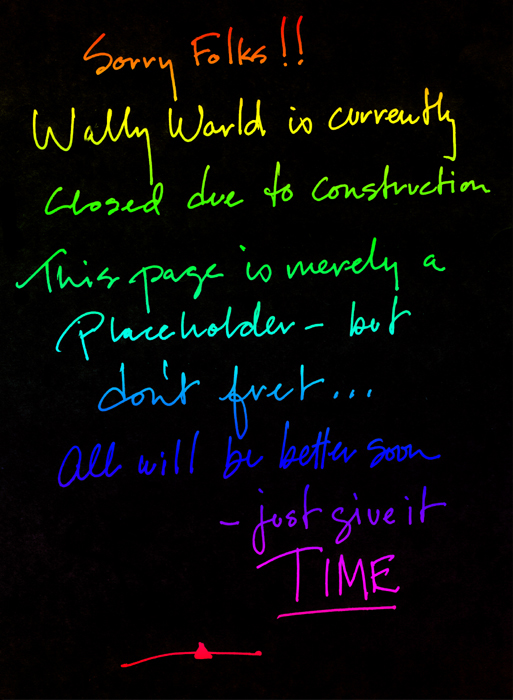 Sorry Folks!!
Wally World is currently
Closed due to construction
This page is merely a
Placeholder - but
don't fret...
All will be better soon
- just give it
TIME